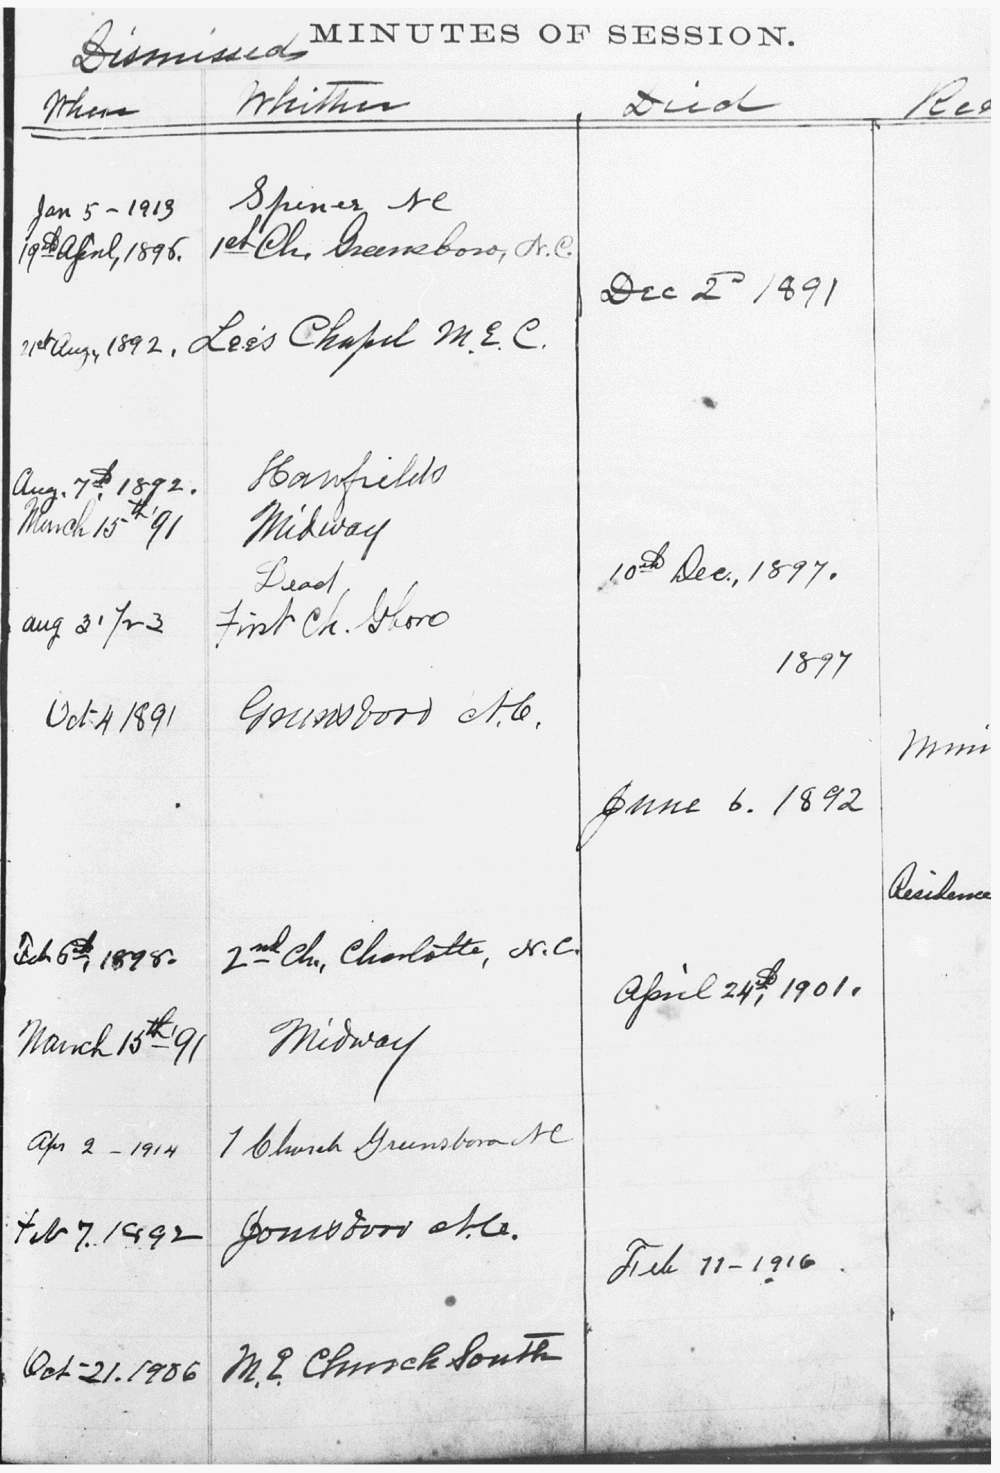 MINUTES OF SESSION.
Dismissed
When Whither Died Rec
Jan 5 - 1913 Spencer NC
19th April, 1896. 1st Ch. Greensboro, N.C.
Dec 2nd 1891
21st Aug, 1892. Lee's Chapel M.E.C.
Aug. 7th, 1892. Hawfields
March 15th '91 Midway
Dead 10th Dec., 1897.
Aug 31/23 First Ch. Gboro
1897
Oct 4 1891 Greensboro N.C.
June 6. 1892
Residence
Feb 6th, 1898. 2nd Ch., Charlotte, N.C.
April 24th, 1901.
March 15th '91 Midway
Apr 2 - 1914 1 Church Greensboro NC
Feb 7. 1892 Jonesboro N.C.
Feb 11 - 1916.
Oct-21. 1906 M.E. Church South